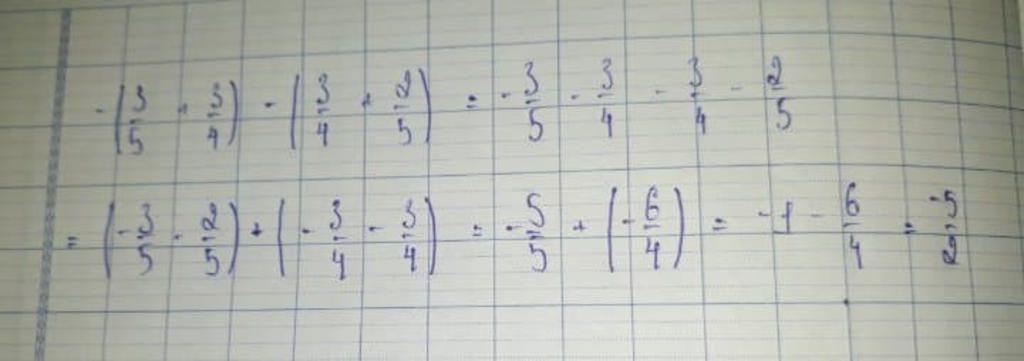 -(3/5 + 3/4) - (3/4 + 2/5) = -3/5 - 3/4 - 3/4 - 2/5
= (-3/5 - 2/5) + (-3/4 - 3/4) = -5/5 + (-6/4) = -1 - 6/4 = -5/2